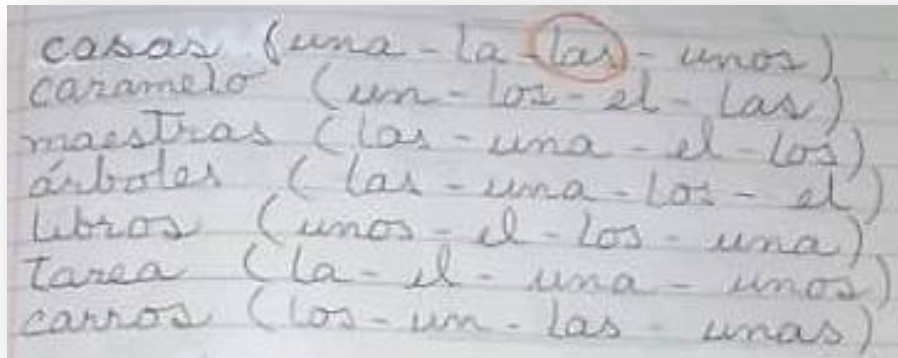 casas (una - la - las - unos)
caramelo (un - los - el - las)
maestras (las - una - el - los)
árboles (las - una - los - el)
libros (unos - el - los - una)
tarea (la - el - una - unos)
carros (los - un - las - unas)